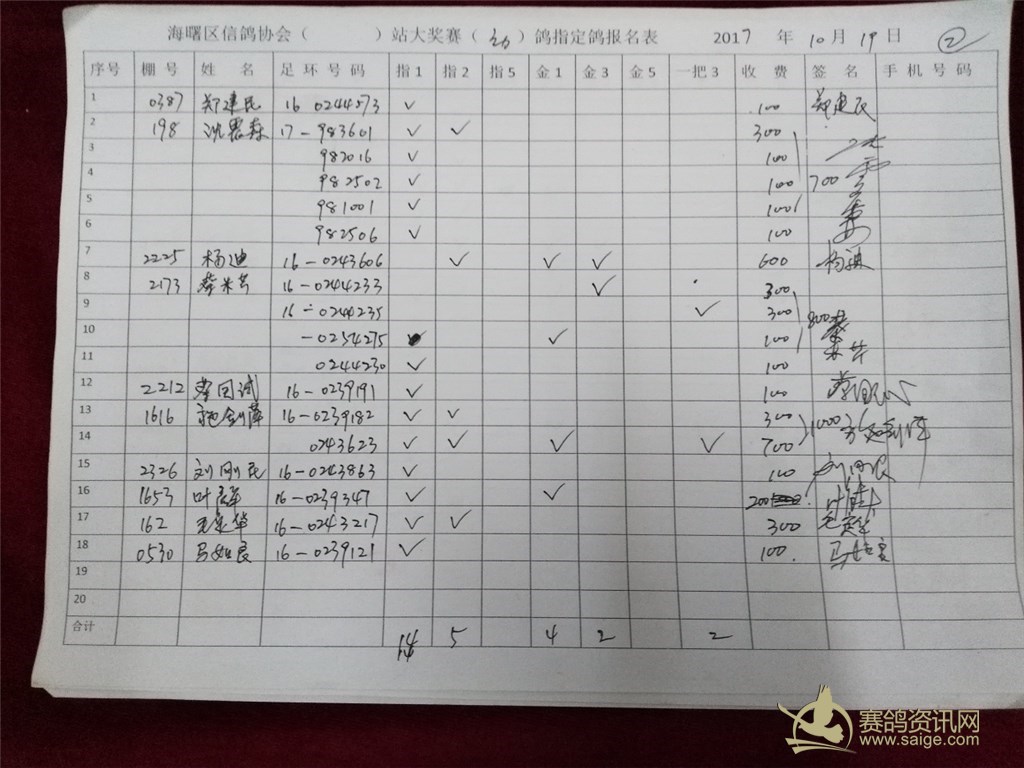 海曙区信鸽协会（ ）站大奖赛（幼）鸽指定鸽报名表 2017 年 10 月 19 日 ②
序号 棚号 姓 名 足环号码 指1 指2 指5 金1 金3 金5 一把3 收 费 签 名 手机号码
1 0387 郑建民 16 0244573 ✓ 100 郑建民
2 198 沈 17-983601 ✓ ✓ 300
3 982016 ✓ 100
4 982502 ✓ 100 700
5 981001 ✓ 100
6 982506 ✓ 100
7 2225 杨迪 16-0243606 ✓ ✓ ✓ 600
8 2173 16-0244233 ✓ 300
9 16-0244235 ✓ 300 800
10 -0254275 ✓ 100
11 0244230 ✓ 100
12 2212 16-0239191 ✓ 100
13 1616 16-0239182 ✓ ✓ 300
14 0243623 ✓ ✓ ✓ ✓ 700 1000
15 2326 刘刚民 16-0243863 ✓ 100
16 1653 叶 16-0239347 ✓ ✓ 200
17 162 16-0243217 ✓ ✓ 300
18 0530 马如良 16-0239121 ✓ 100. 马如良
19
20
合计 14 5 4 2 2
赛鸽资讯网
www.saige.com